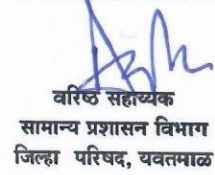 वरिष्ठ सहाय्यक
सामान्य प्रशासन विभाग
जिल्हा परिषद, यवतमाळ